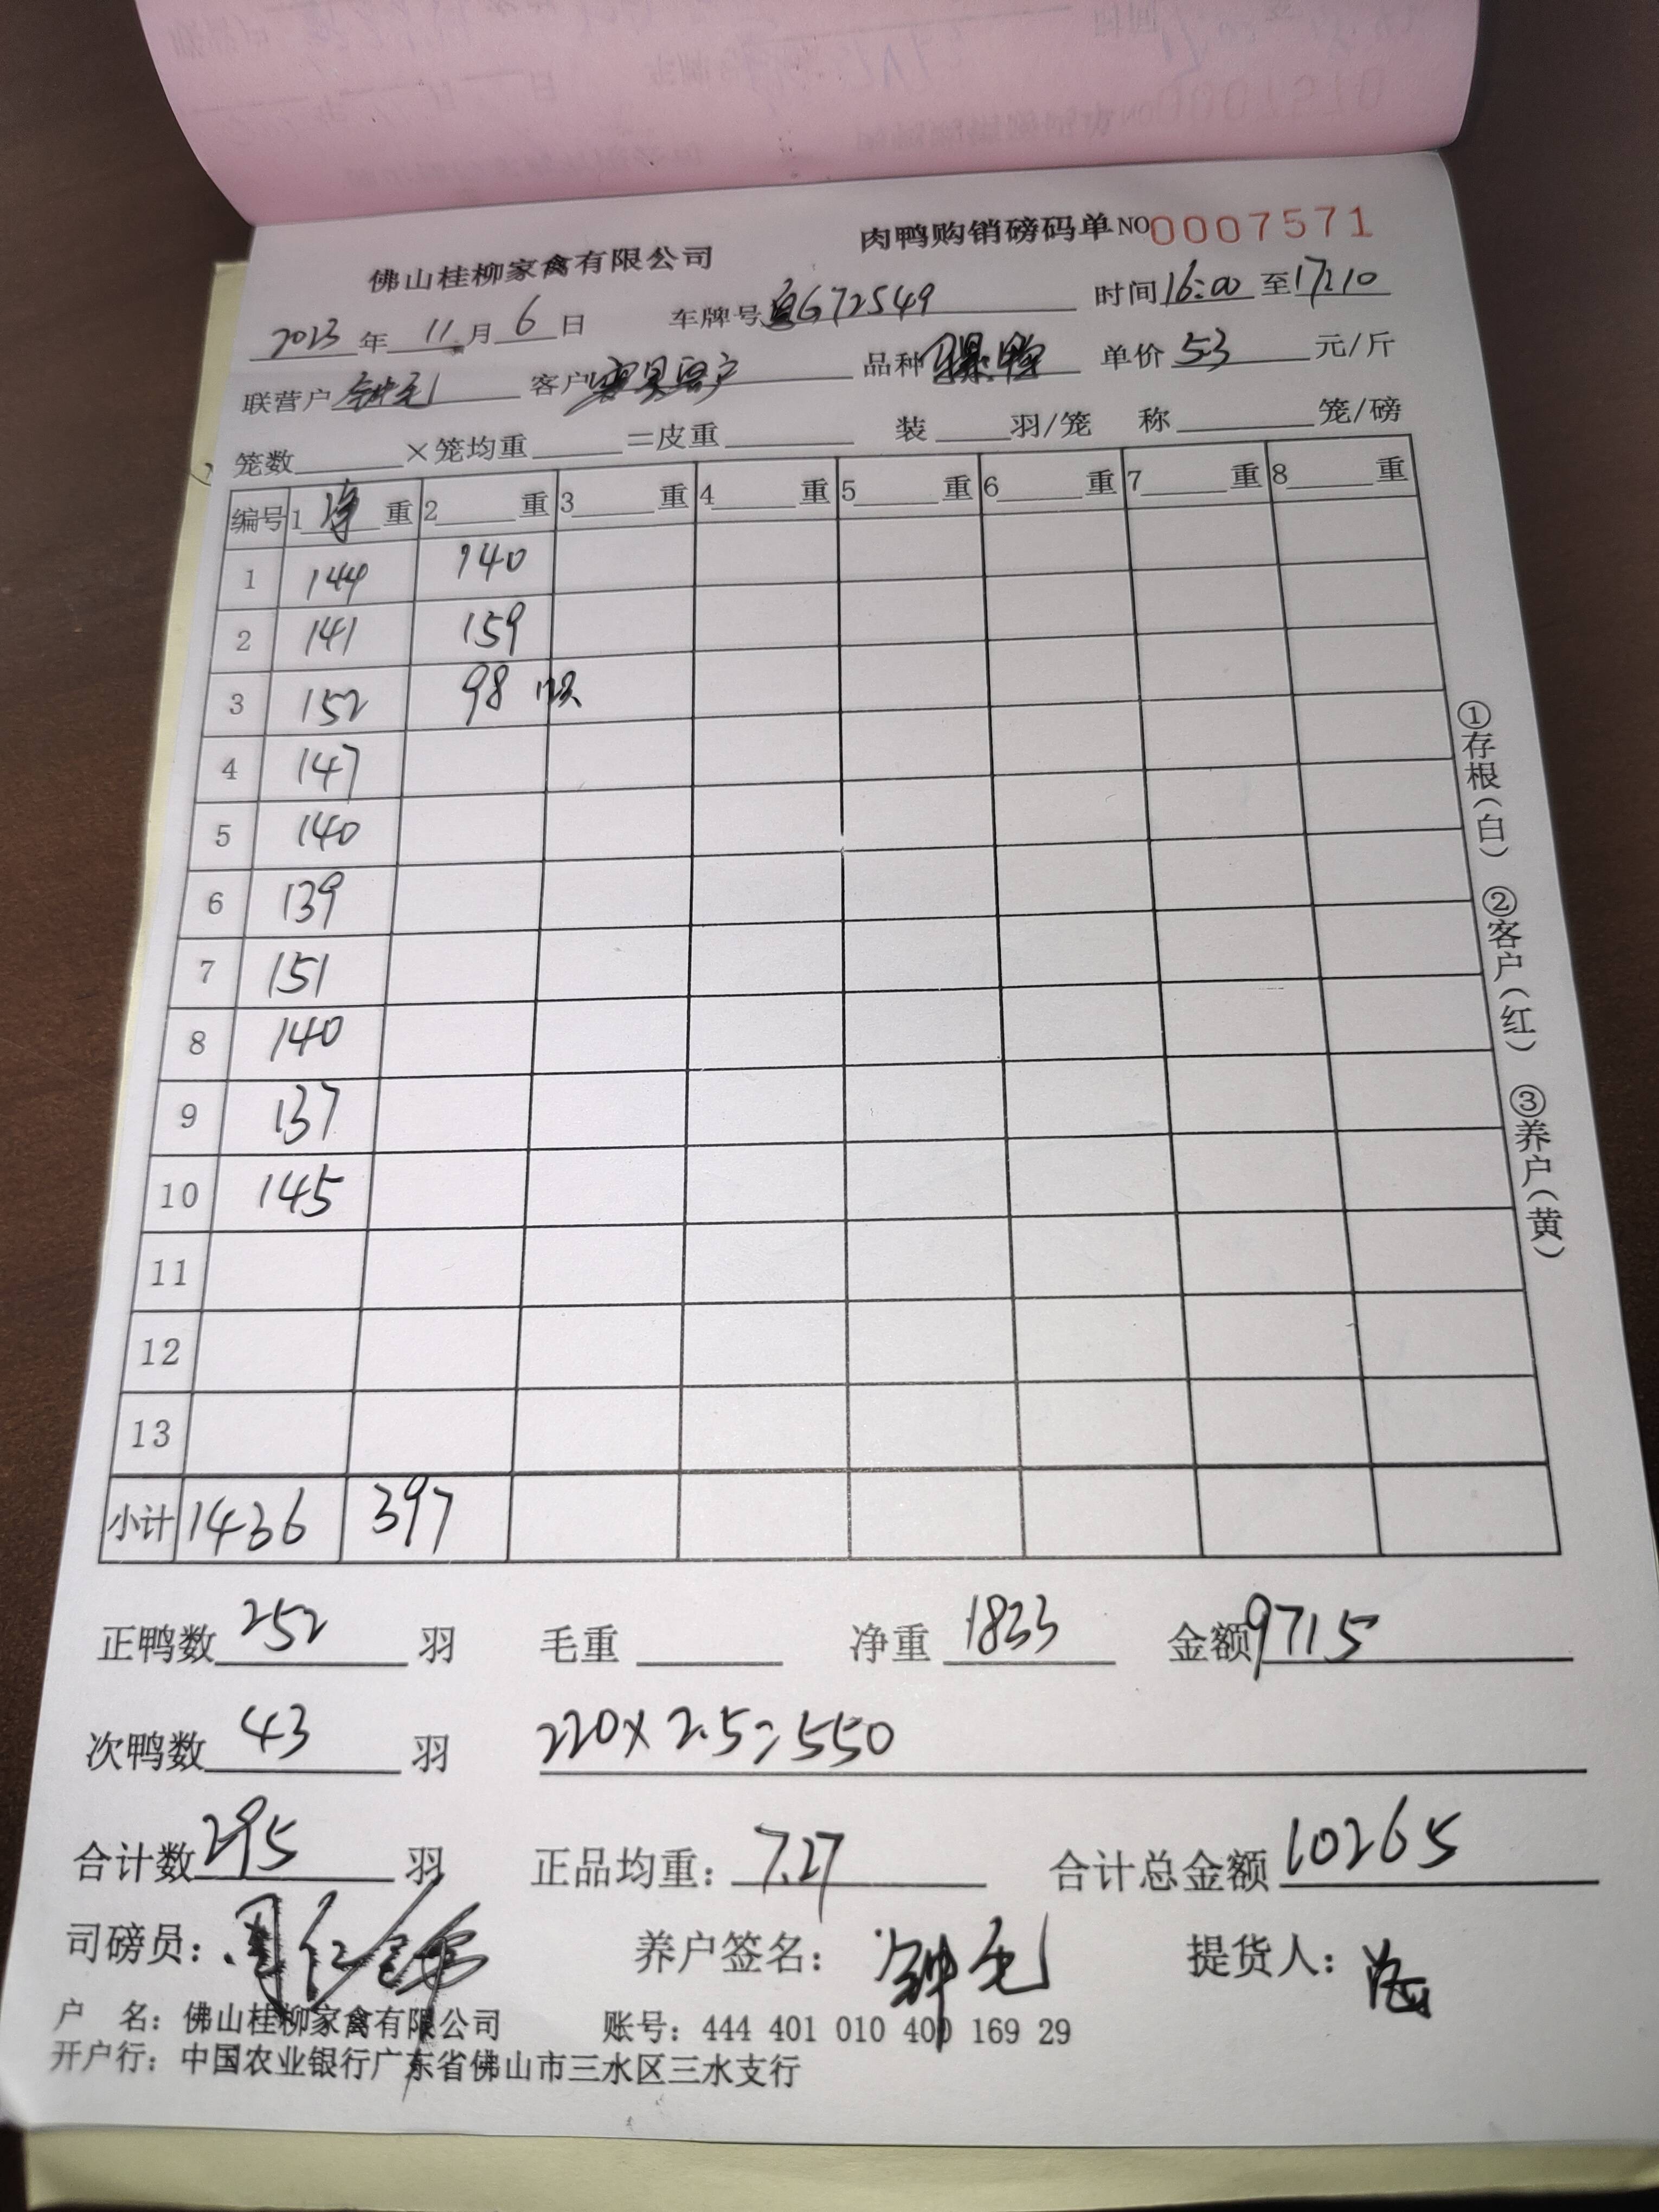 佛山桂柳家禽有限公司 肉鸭购销磅码单 NO 0007571
2023 年 11 月 6 日 车牌号 G72549 时间 16:00 至 17:10
联营户 钟毛 客户 客户 品种 单价 53 元/斤
笼数 ×笼均重 =皮重 装 羽/笼 称 笼/磅
编号 1 净 重 2 重 3 重 4 重 5 重 6 重 7 重 8 重
1 144 140
2 141 159
3 152 98
4 147
5 140
6 139
7 151
8 140
9 137
10 145
11
12
13
小计 1436 397
正鸭数 252 羽 毛重 净重 1833 金额 9715
次鸭数 43 羽 220×2.5=550
合计数 295 羽 正品均重: 7.27 合计总金额 10265
司磅员: 养户签名: 钟毛 提货人:
户 名: 佛山桂柳家禽有限公司 账号: 444 401 010 400 169 29
开户行: 中国农业银行广东省佛山市三水区三水支行
①存根(白) ②客户(红) ③养户(黄)